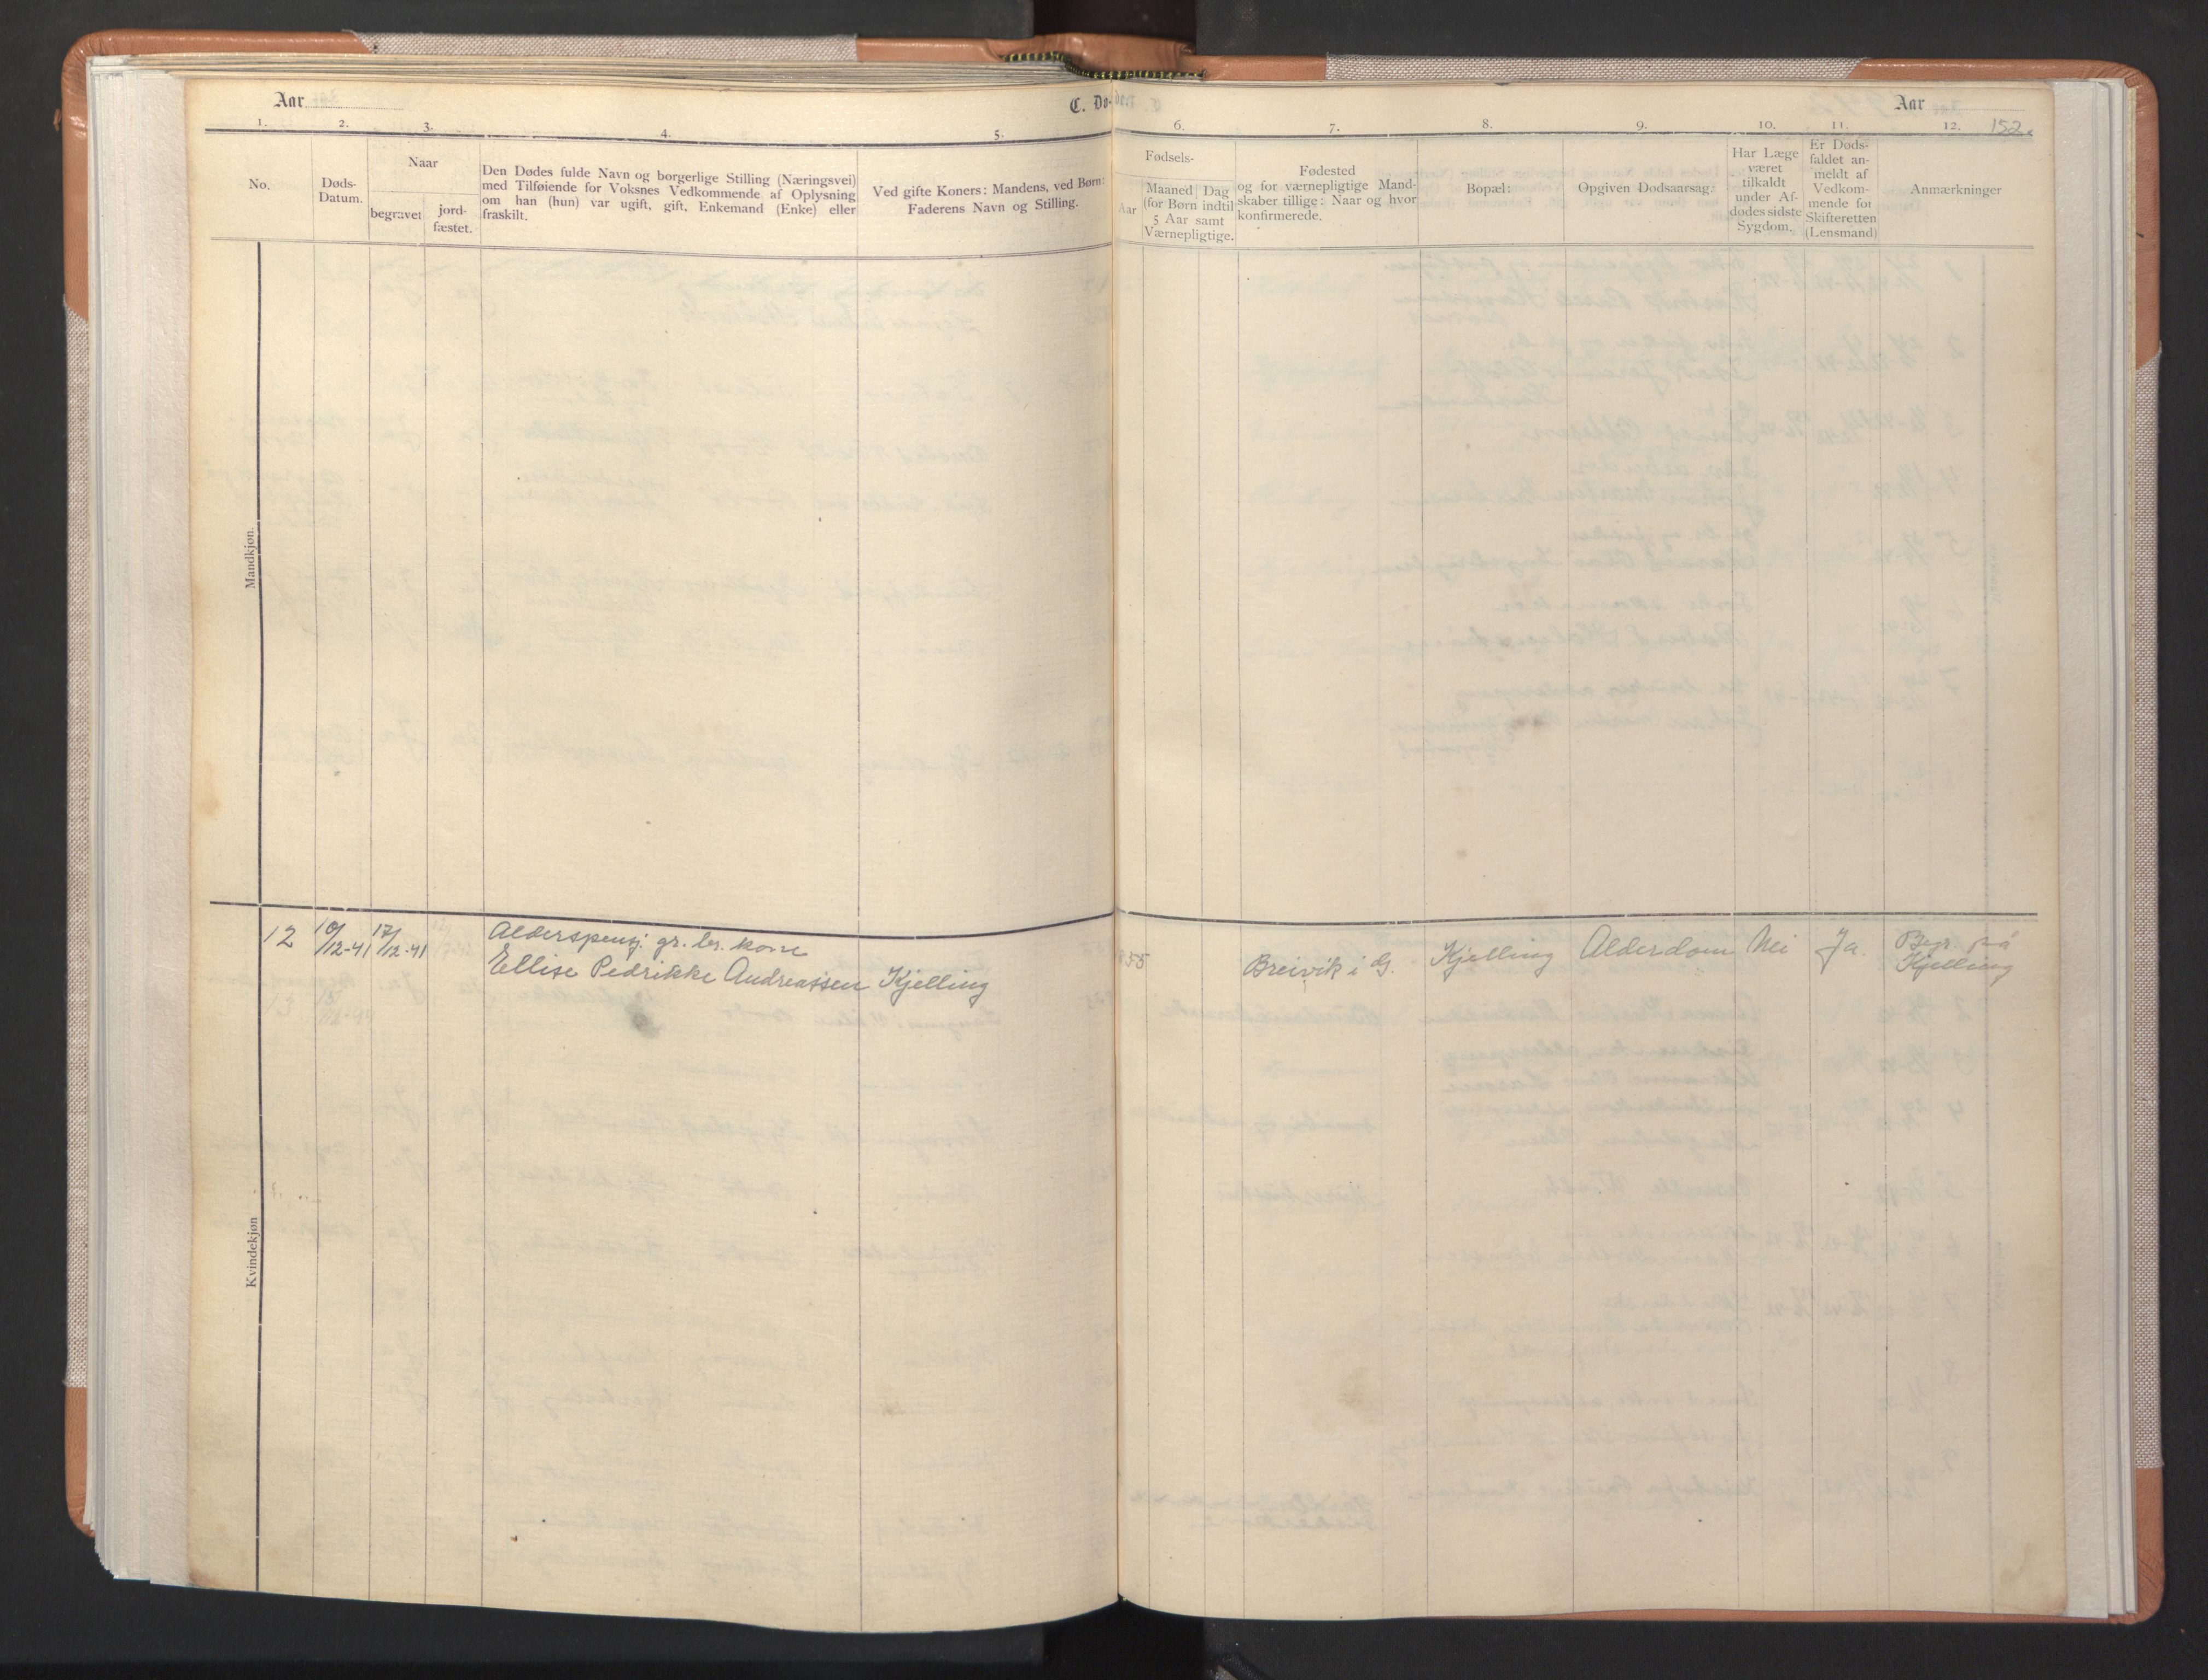 Aar
C. Dø-
Aar
1. 2. 3. 4. 5. 6. 7. 8. 9. 10. 11. 12. 152.
No.
Døds-
Datum.
Naar
begravet
jord-
fæstet.
Den Dødes fulde Navn og borgerlige Stilling (Næringsvei)
med Tilføiende for Voksnes Vedkommende af Oplysning
om han (hun) var ugift, gift, Enkemand (Enke) eller
fraskilt.
Ved gifte Koners: Mandens, ved Børn:
Faderens Navn og Stilling.
Fødsels-
Aar
Maaned
Dag
(for Børn indtil
5 Aar samt
Værnepligtige.
Fødested
og for værnepligtige Mand-
skaber tillige: Naar og hvor
konfirmerede.
Bopæl:
Opgiven Dødsaarsag:
Har Læge
været
tilkaldt
under Af-
dødes sidste
Sygdom.
Er Døds-
faldet an-
meldt af
Vedkom-
mende for
Skifteretten
(Lensmand)
Anmærkninger
Mandkjøn.
12 10/12-41 17/12-41 Alderspensj. gr. br. kone
Ellise Pedrikke Andreassen Kjelling 55 Breivik i G. Kjelling Alderdom Nei Ja. Begr. på
Kjelling
13
Kvindekjøn